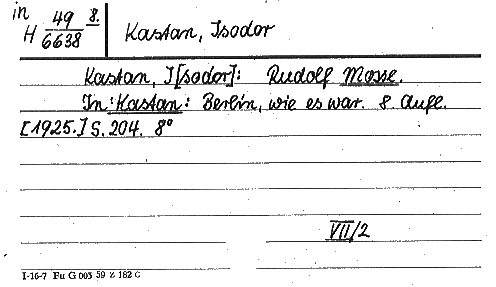 in
H 49/6638 8. Kastan, Isodor
Kastan, I[sodor]: Rudolf Mosse.
In: Kastan: Berlin, wie es war. 8. Aufl.
[1925.] S. 204. 8°
VII/2
I-16-7 Fu G 003 59 Z 182 C